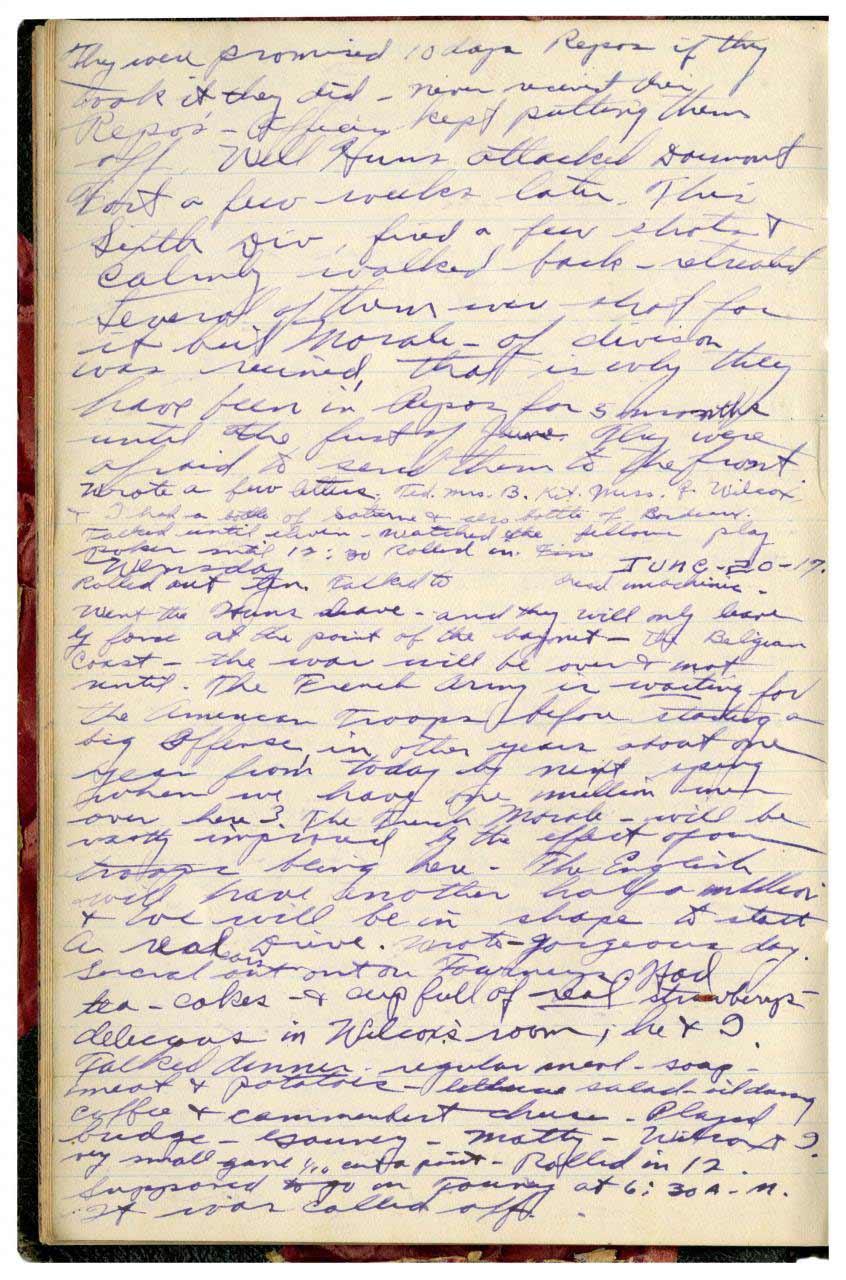 They were promised 10 days Repos if they
took it they did - never received their
Repos - Officers kept putting them
off. Well Huns attacked Doumont
Fort a few weeks later. This
Sixth Div, fired a few shots &
calmly walked back - retreated
Several of them were shot for
it but Morale - of division
was ruined, that is why they
have been in Repos for 5 months
until the first of June. They were
afraid to send them to the front
Wrote a few letters. Ted. Mrs. B. Kit. Miss. Wilcox
& I had a bottle of Sauterne & also bottle of Bordeaux.
Talked until eleven - watched the fellows play
poker until 12:30 Rolled in. Fine
Wensday JUNE-20-17.
Rolled out ten. Talked to
Went the Huns leave - and they will only leave
by force at the point of the bayonet - The Belgian
Coast - the war will be over & not
until. The French Army is waiting for
the American Troops before starting a
big Offense in other years about one
year from today by next spring
when we have one million men
over here. The French Morale - will be
vastly improved by the effect of our
troops being here - The English
will have another half a million
& We will be in shape to start
a real Drive. Wrote - gorgeous day.
Several cars out on Tourneys. Had
tea - cakes - & cup full of real strawberrys
delicious in Wilcox's room, he & I.
Talked dinner. regular meal - soup -
meat & potatoes - lettuce salad -
coffee & cammenbert cheese - Played
bridge - - Matty - Wilcox & I.
very small game 1/10 cent a point - Rolled in 12.
Supposed to go on Tourney at 6:30 A.M.
It was called off.